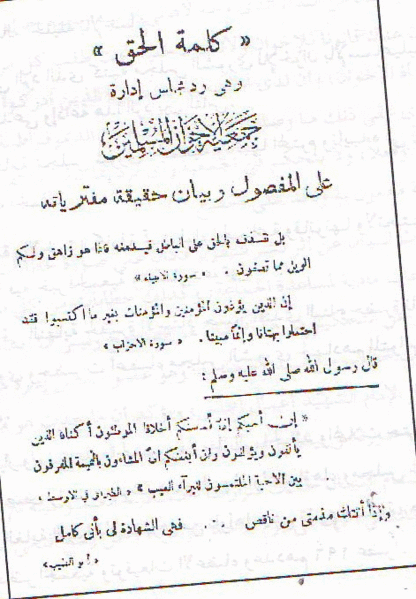 « كلمة الحق »
وهى رد مجلس إدارة
جمعية الاخوان المسلمين
على المفصول وبيان حقيقة مفترياته
بل نقذف بالحق على الباطل فيدمغه فاذا هو زاهق ولكم
الويل مما تصفون . « سورة الانبياء »
إن الذين يؤذون المؤمنين والمؤمنات بغير ما اكتسبوا فقد
احتملوا بهتانا وإثما مبينا . « سورة الاحزاب »
قال رسول الله صلى الله عليه وسلم :
« إن أحبكم إلى أحسنكم أخلاقا الموطئون أكنافا الذين
يألفون ويؤلفون وإن أبغضكم إلى المشاءون بالنميمة المفرقون
بين الاحبة الملتمسون للبرآء العيب » « الطبرانى فى الاوسط »
وإذا أتتك مذمتى من ناقص . . . فهى الشهادة لى بأنى كامل
« أبو الطيب »